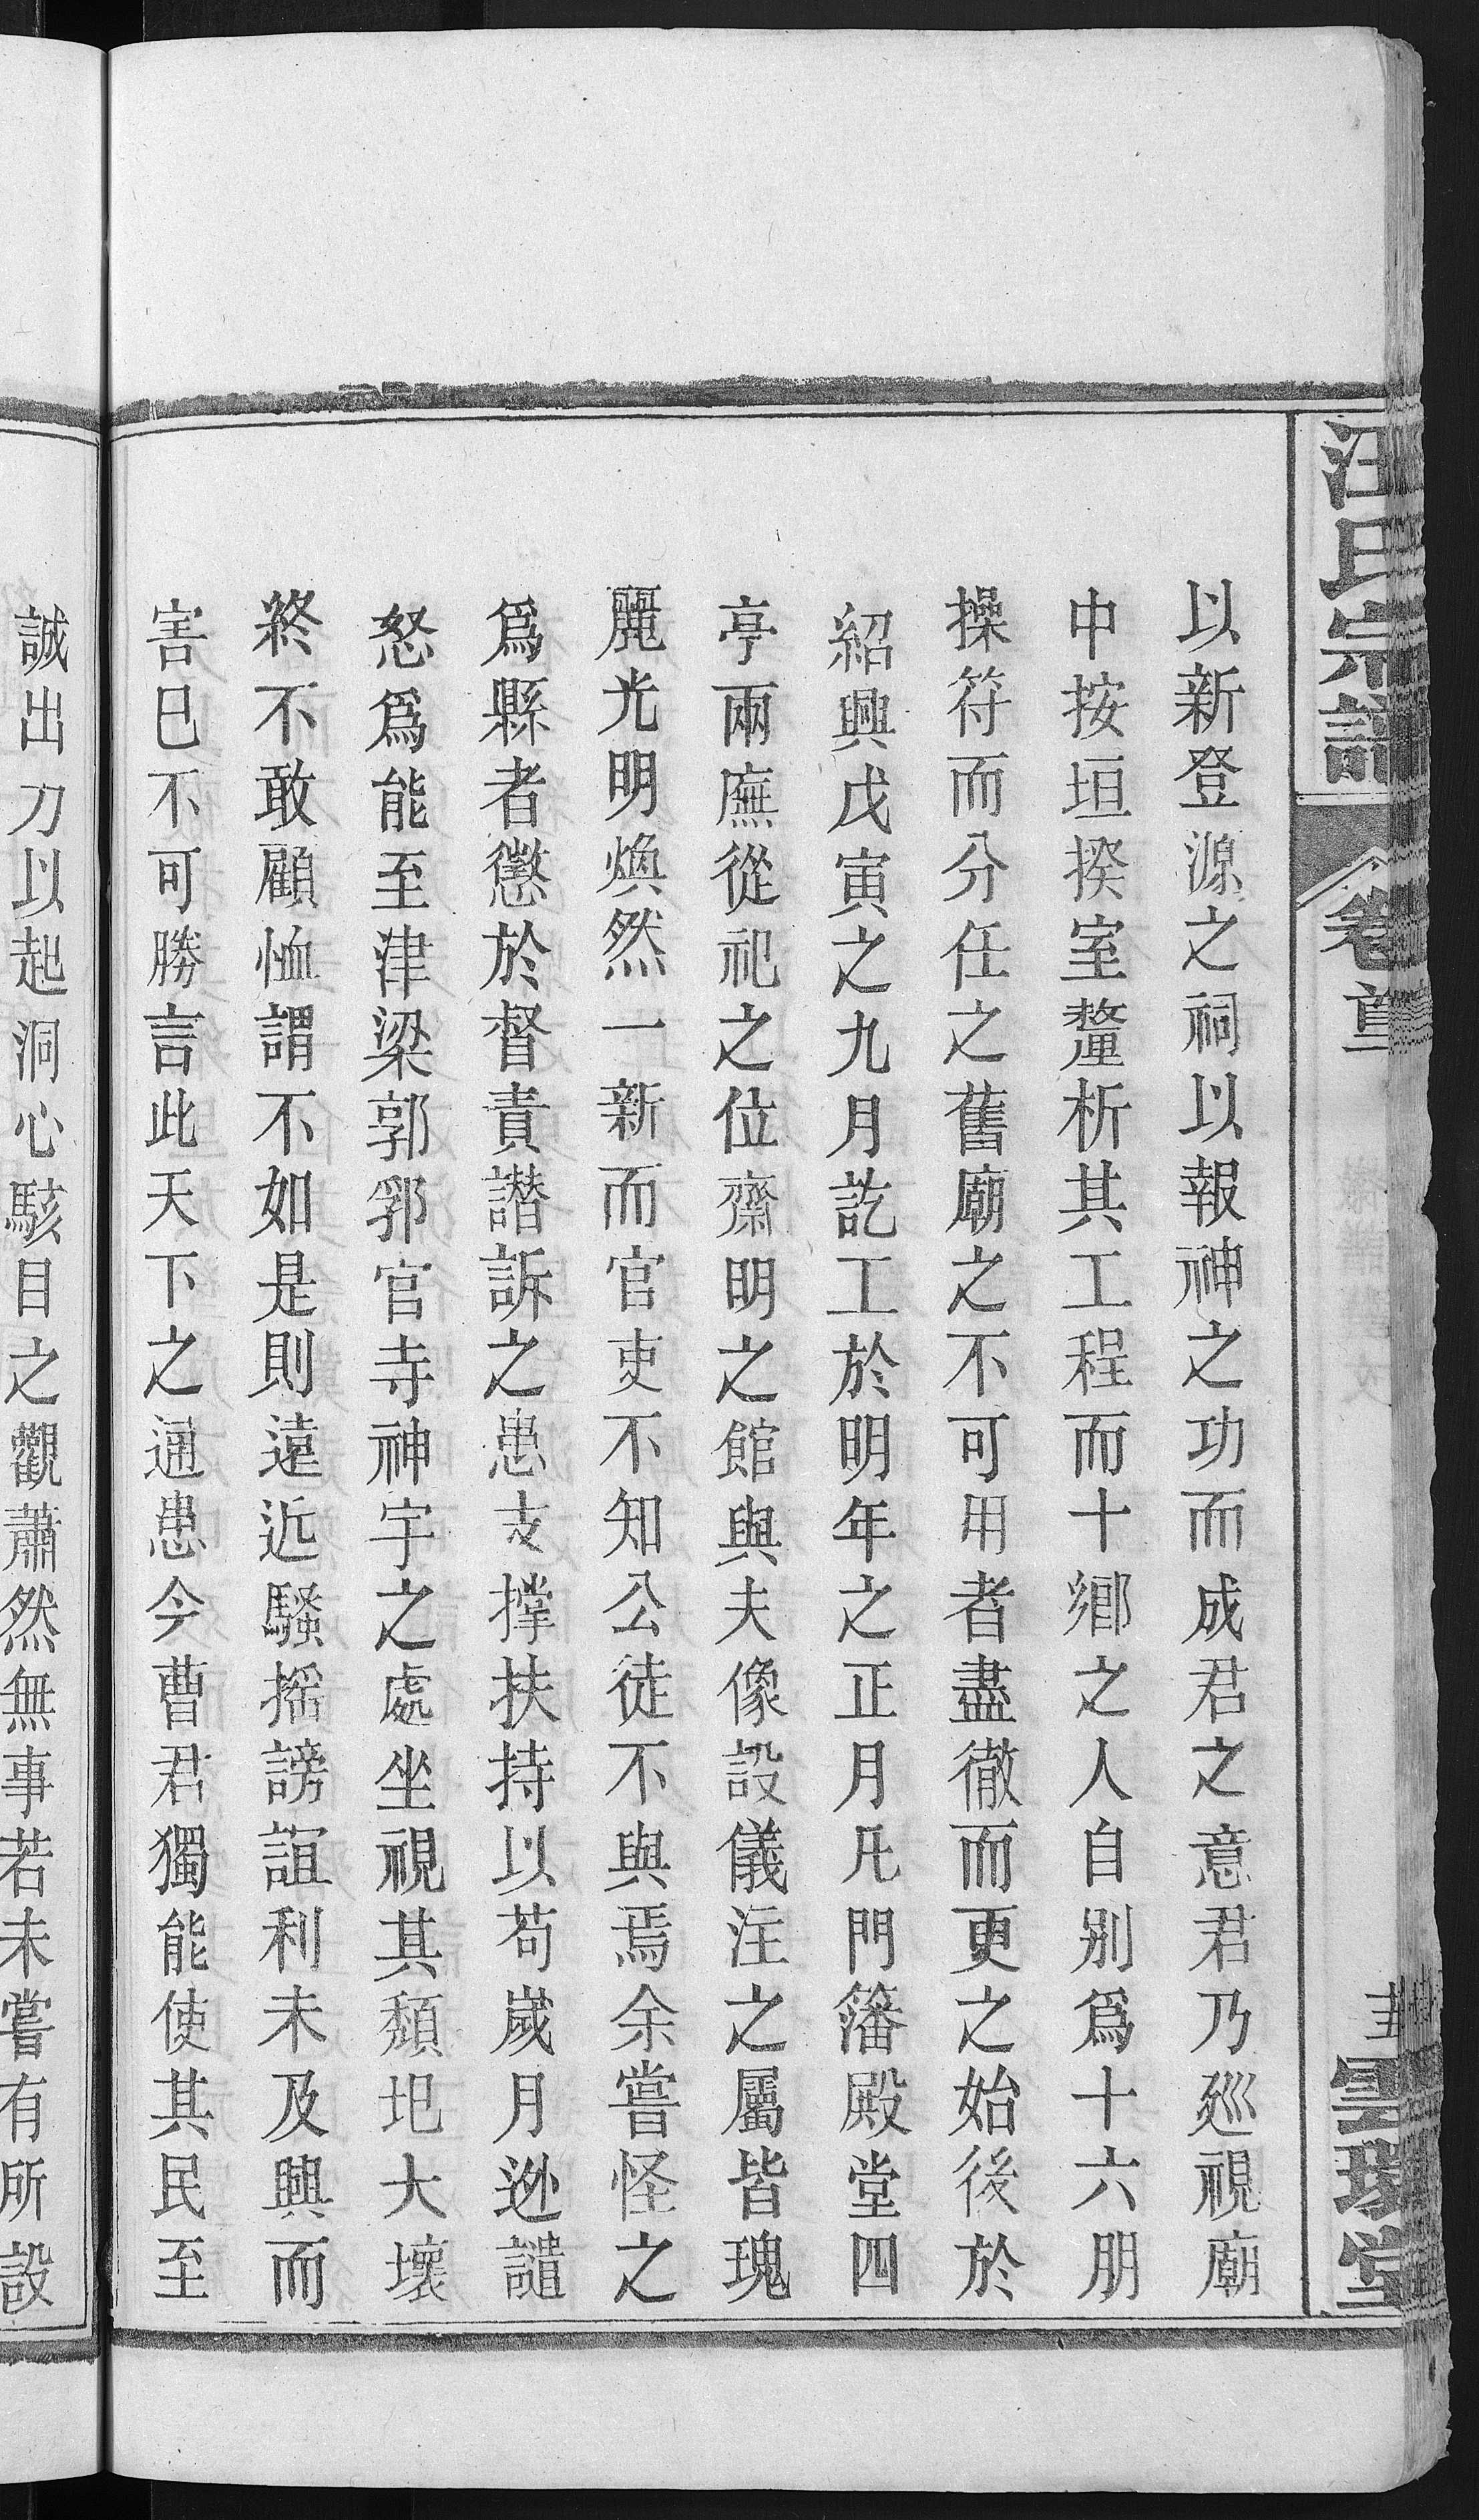 汪氏宗譜
卷首
以新登源之祠以報神之功而成君之意君乃廵視廟
中按垣揆室釐析其工程而十鄉之人自别爲十六朋
操符而分任之舊廟之不可用者盡徹而更之始後於
紹興戊寅之九月訖工於明年之正月凡門籓殿堂四
亭兩廡從祀之位齋明之館與夫像設儀注之屬皆瑰
麗光明煥然一新而官吏不知公徒不與焉余嘗怪之
爲縣者懲於督責譖訴之患支撑扶持以苟嵗月逃譴
怒爲能至津梁郭郛官寺神宇之處坐視其頽圯大壞
終不敢顧恤謂不如是則遠近騷摇謗誼利未及興而
害巳不可勝言此天下之通患今曹君獨能使其民至
誠出刀以起洞心駭目之觀蕭然無事若未嘗有所設